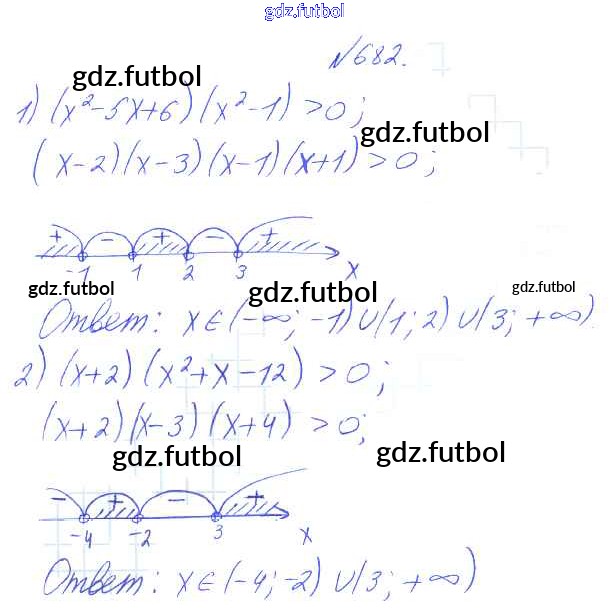 gdz.futbol
№682.
gdz.futbol
1) (x²-5x+6)(x²-1)>0;
gdz.futbol
(x-2)(x-3)(x-1)(x+1)>0;
+ - + - +
-1 1 2 3 x
gdz.futbol gdz.futbol gdz.futbol
Ответ: x∈(-∞; -1)∪(1; 2)∪(3; +∞)
2) (x+2)(x²+x-12)>0;
(x+2)(x-3)(x+4)>0;
gdz.futbol gdz.futbol
- + - +
-4 -2 3 x
Ответ: x∈(-4; -2)∪(3; +∞)